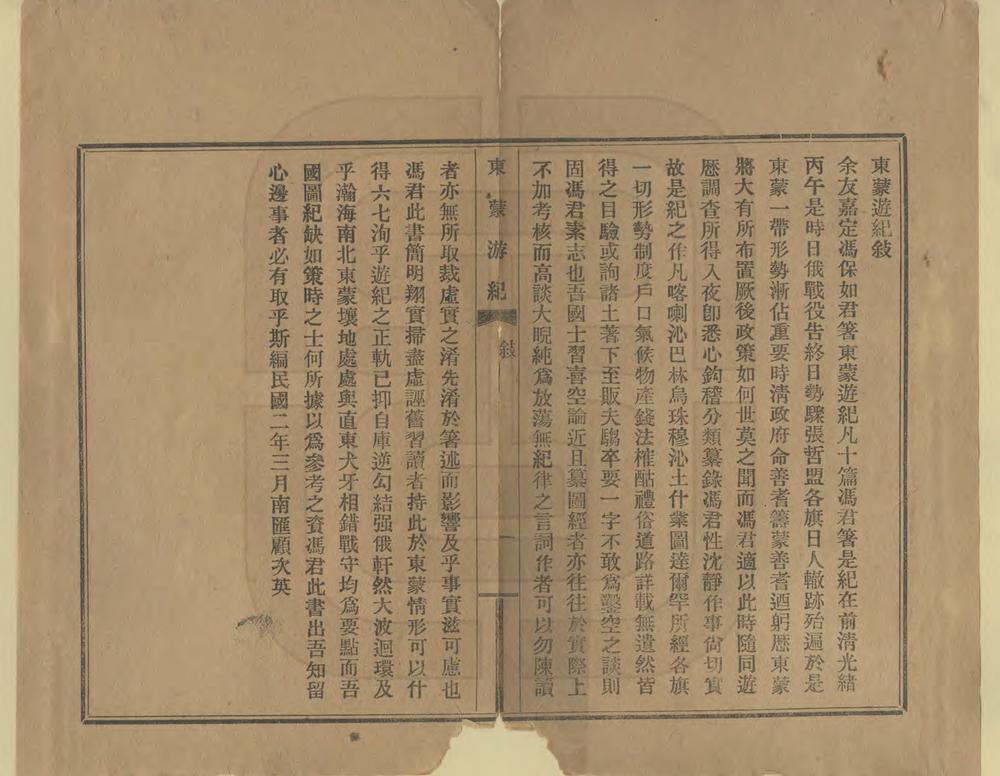 東蒙遊紀敍
余友嘉定馮保如君箸東蒙遊紀凡十篇馮君箸是紀在前清光緒
丙午是時日俄戰役告終日勢驟張哲盟各旗日人轍跡殆遍於是
東蒙一帶形勢漸佔重要時淸政府命善耆籌蒙善耆迺躬歴東蒙
將大有所布置厥後政策如何世莫之聞而馮君適以此時隨同遊
歴調查所得入夜卽悉心鈎稽分類纂錄馮君性沈靜作事尙切實
故是紀之作凡喀喇沁巴林烏珠穆沁土什業圖達爾罕所經各旗
一切形勢制度戶口氣候物產錢法榷酤禮俗道路詳載無遺然皆
得之目驗或詢諸土著下至販夫騶卒要一字不敢爲鑿空之談則
固馮君素志也吾國士習喜空論近且纂圖經者亦往往於實際上
不加考核而高談大睨純爲放蕩無紀律之言詞作者可以勿陳讀
東蒙游紀
敍
一
者亦無所取裁虛實之淆先淆於箸述而影響及乎事實滋可慮也
馮君此書簡明翔實掃盡虛誣舊習讀者持此於東蒙情形可以什
得六七洵乎遊紀之正軌已抑自庫逆勾結强俄軒然大波迴環及
乎瀚海南北東蒙壤地處處與直東犬牙相錯戰守均爲要點而吾
國圖紀缺如策時之士何所據以爲參考之資馮君此書出吾知留
心邊事者必有取乎斯編民國二年三月南匯顧次英